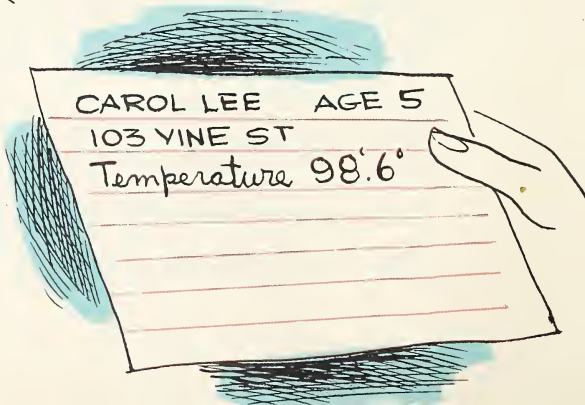 CAROL LEE AGE 5
103 VINE ST
Temperature 98.6°